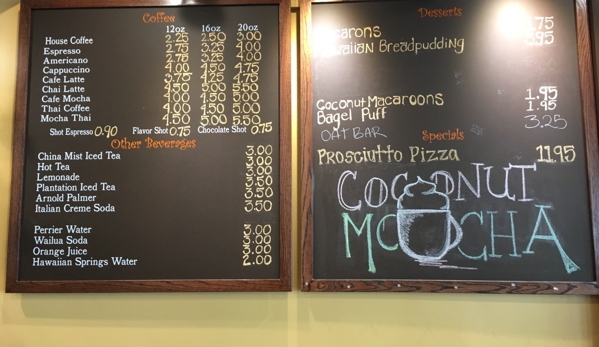 Coffee
12oz 16oz 20oz
House Coffee 2.25 2.50 3.00
Espresso 2.75 3.25 4.00
Americano 2.75 3.25 4.00
Cappuccino 4.00 4.50 4.75
Cafe Latte 3.75 4.25 4.75
Chai Latte 4.50 5.00 5.50
Cafe Mocha 4.00 4.50 5.00
Thai Coffee 4.00 4.50 5.00
Mocha Thai 4.50 5.00 5.50
Shot Espresso 0.90 Flavor Shot 0.75 Chocolate Shot 0.75
Other Beverages
China Mist Iced Tea 3.00
Hot Tea 3.00
Lemonade 3.00
Plantation Iced Tea 3.50
Arnold Palmer 3.50
Italian Creme Soda 3.50
Perrier Water 3.00
Wailua Soda 3.00
Orange Juice 3.00
Hawaiian Springs Water 2.00
Desserts
.75
Breadpudding
Coconut Macaroons 1.95
Bagel Puff 1.95
OAT BAR 3.25
Specials
Prosciutto Pizza 11.95
COCONUT
MOCHA